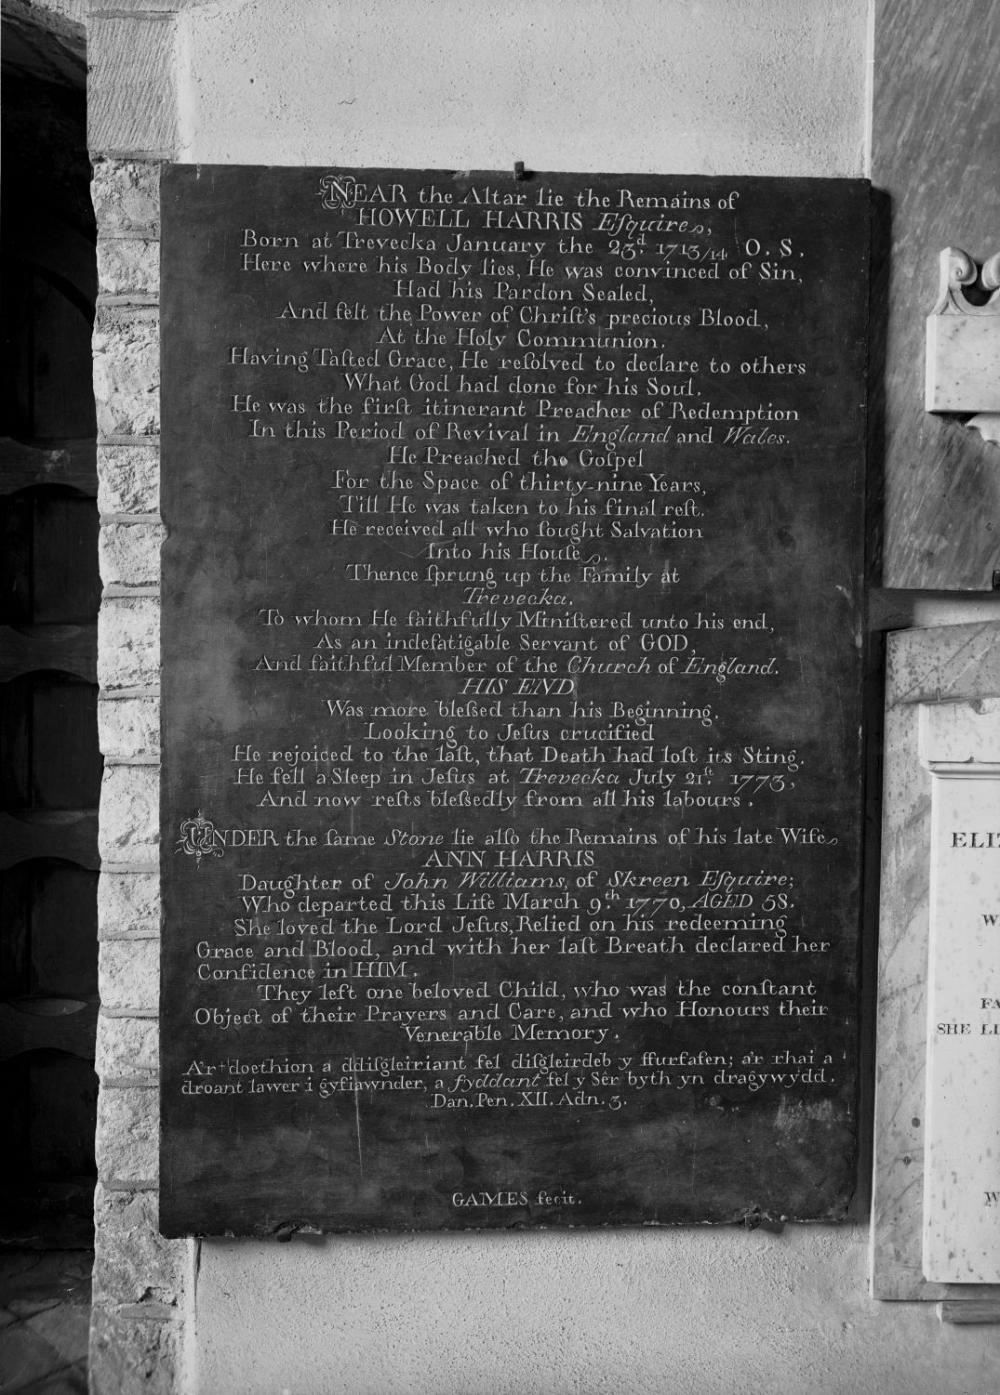 NEAR the Altar lie the Remains of
HOWELL HARRIS Eſquire,
Born at Trevecka January the 23d. 1713/14 O. S.
Here where his Body lies, He was convinced of Sin,
Had his Pardon Sealed,
And felt the Power of Chriſt's precious Blood,
At the Holy Communion.
Having Taſted Grace, He reſolved to declare to others
What God had done for his Soul.
He was the firſt itinerant Preacher of Redemption
In this Period of Revival in England and Wales.
He Preached the Goſpel
For the Space of thirty-nine Years,
Till He was taken to his final reſt.
He received all who ſought Salvation
Into his Houſe.
Thence ſprung up the Family at
Trevecka.
To whom He faithfully Miniſtered unto his end,
As an indefatigable Servant of GOD,
And faithful Member of the Church of England.
HIS END
Was more bleſsed than his Beginning.
Looking to Jeſus crucified
He rejoiced to the laſt, that Death had loſt its Sting.
He fell a Sleep in Jeſus at Trevecka July 21ſt. 1773,
And now reſts bleſsedly from all his labours.
UNDER the ſame Stone lie alſo the Remains of his late Wife
ANN HARRIS
Daughter of John Williams, of Skreen Eſquire;
Who departed this Life March 9.th 1770, AGED 58.
She loved the Lord Jeſus, Relied on his redeeming
Grace and Blood, and with her laſt Breath declared her
Confidence in HIM.
They left one beloved Child, who was the conſtant
Object of their Prayers and Care, and who Honours their
Venerable Memory.
A'r doethion a ddiſgleiriant fel diſgleirdeb y ffurfafen; a'r rhai a
droant lawer i gyfiawnder, a fyddant fel y Sêr byth yn dragywydd.
Dan. Pen. XII. Adn. 3.
GAMES fecit.
ELIZ
W
FA
SHE LI
W